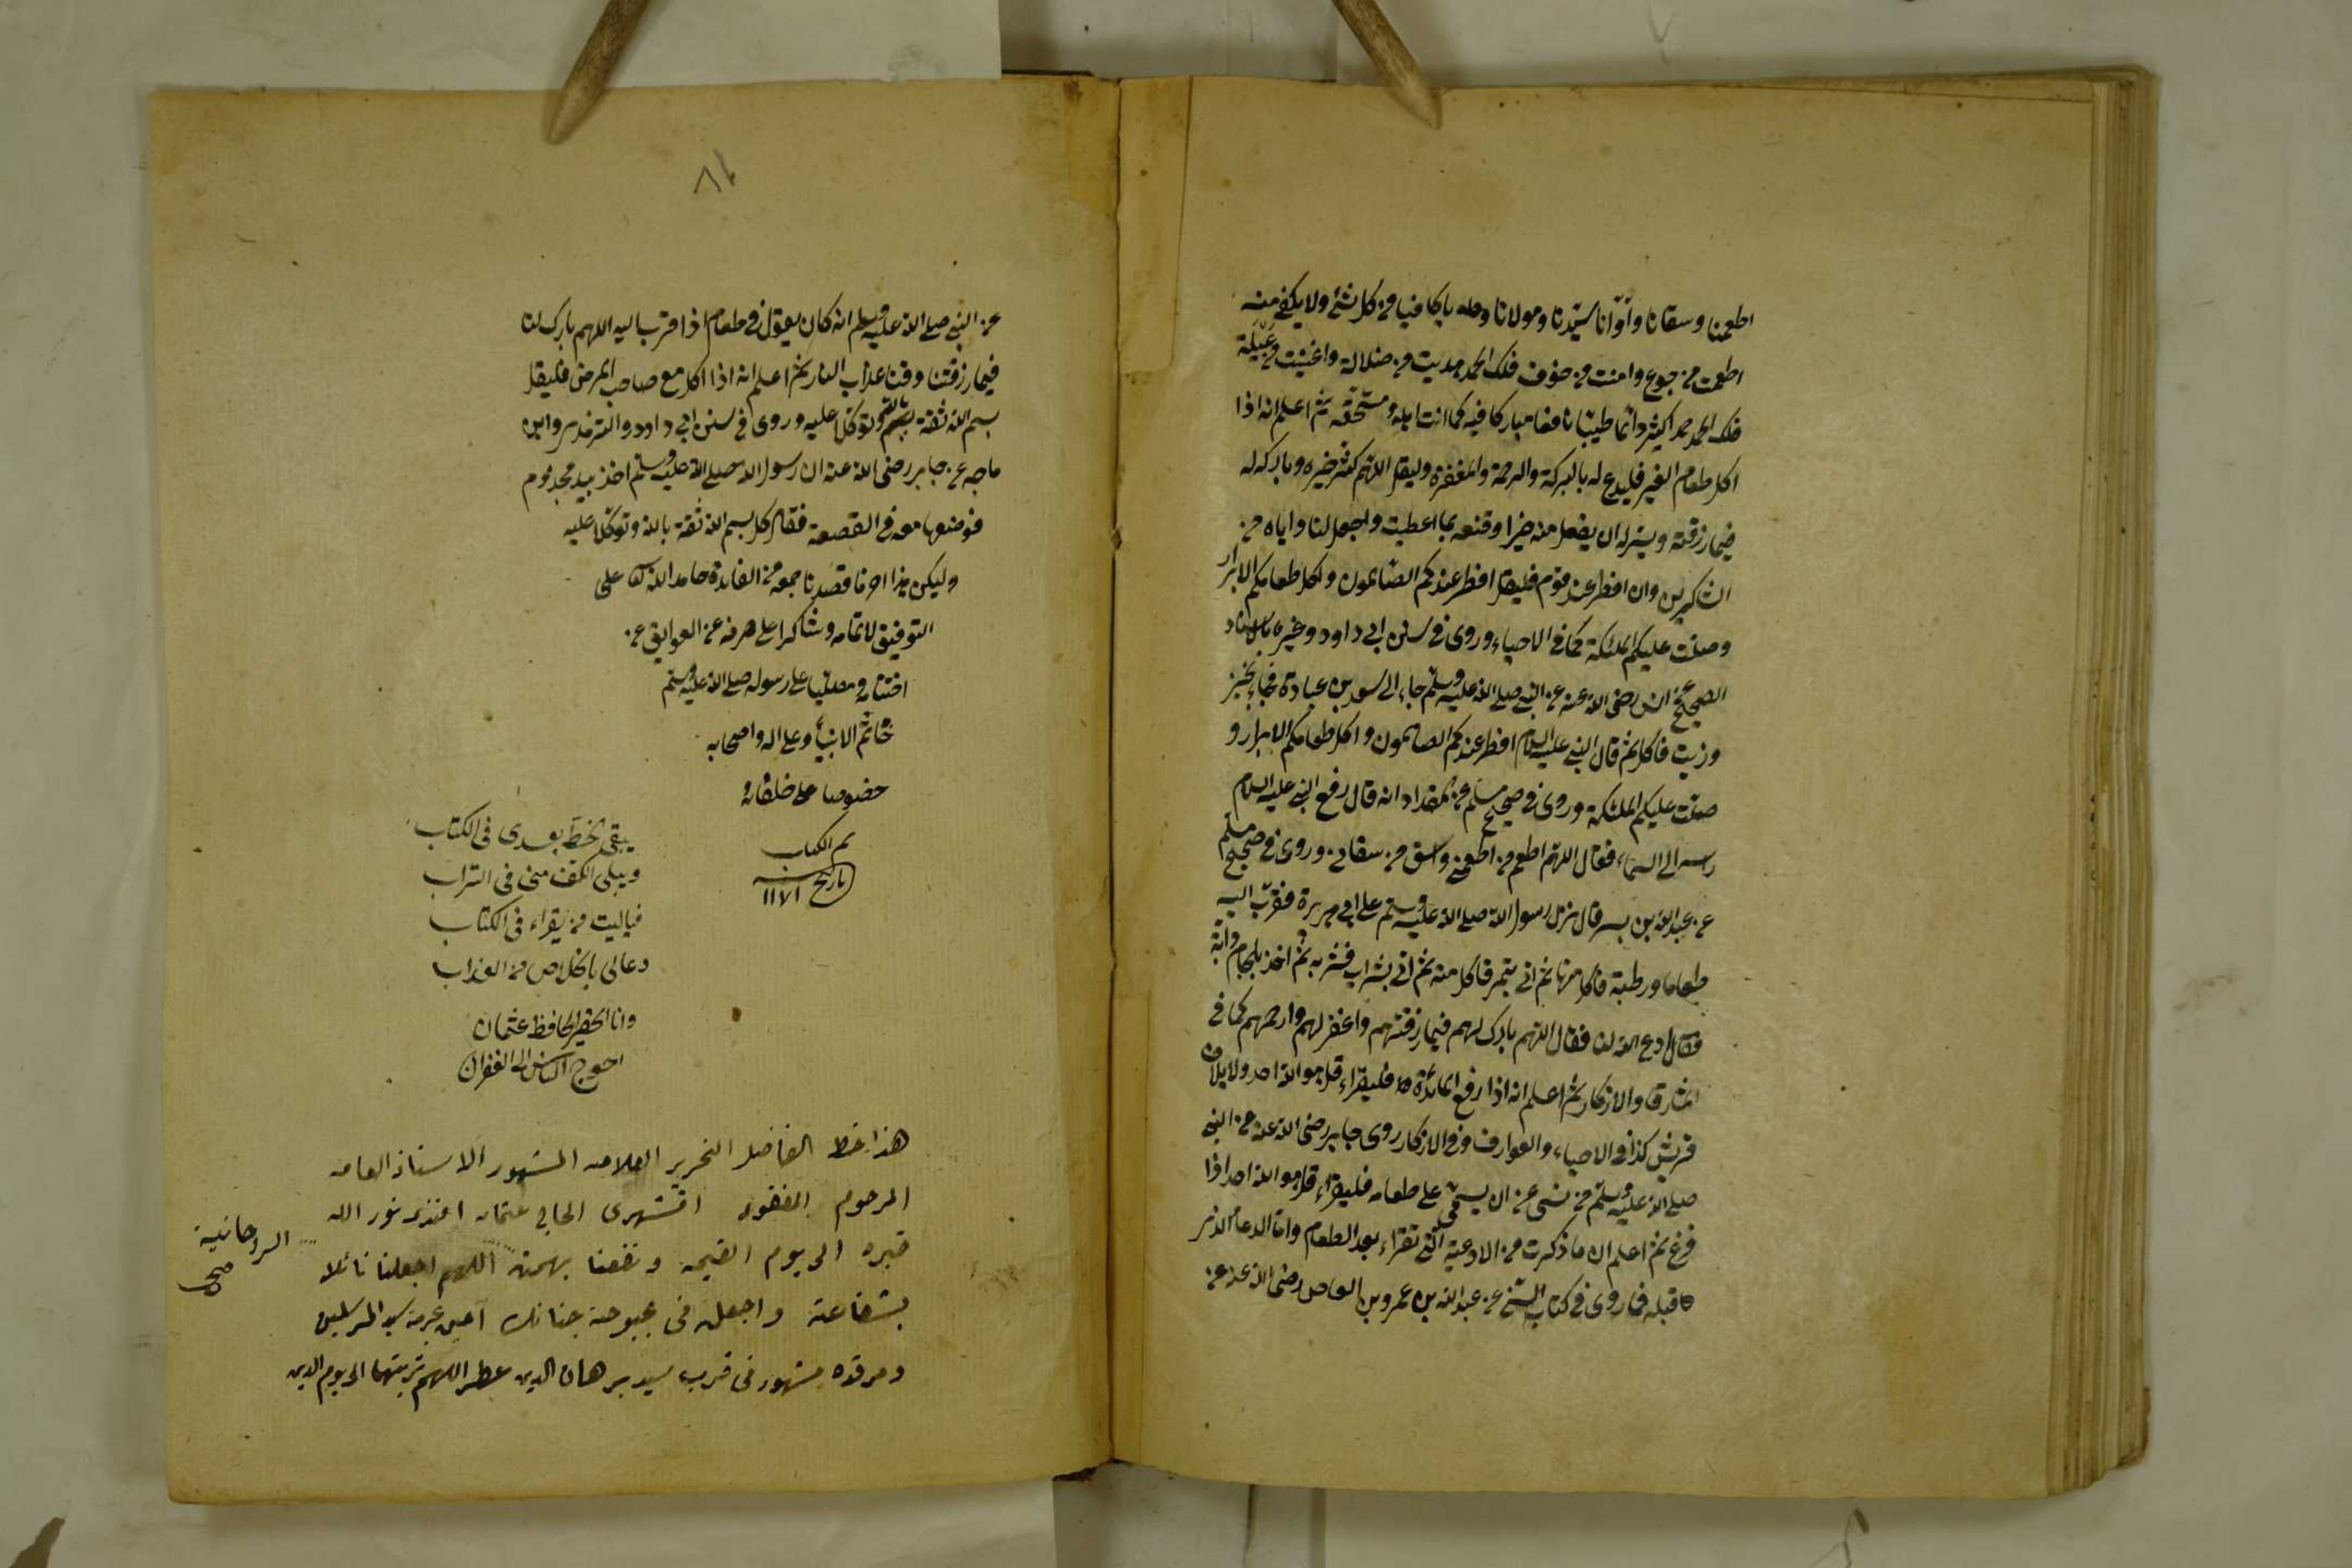 اطعمنا وسقانا وآوانا سيدنا ومولانا وحده ياكافيا من كل شئ ولا يكفى منه
اطعمت من جوع وامنت من خوف فلك الحمد هديت من ضلالة واغنيت من عيلة
فلك الحمد حمدا كثيرا دائما طيبا نافعا مباركا فيه كما انت اهله ومستحقه ثم اعلم انه اذا
اكل طعام الغير فليدع له بالبركة والرحمة والمغفرة وليقل اللهم كثر خيره وبارك له
فيما رزقته ويسر له ان يفعل منه خيرا وقنعه بما اعطيت واجعلنا واياه من
الشاكرين وان افطر عند قوم فليقل افطر عندكم الصائمون واكل طعامكم الابرار
وصلت عليكم الملئكة كما فى الاحياء وروى فى سنن ابى داود وغيره بالاسناد
الصحيح عن انس رضى الله عنه عن النبى صلى الله عليه وسلم جاء الى سعد بن عبادة فجاء بخبز
وزيت فاكل ثم قال النبى عليه السلام افطر عندكم الصائمون واكل طعامكم الابرار و
صلت عليكم الملئكة وروى فى صحيح مسلم عن المقداد انه قال رفع النبى عليه السلام
رأسه الى السماء فقال اللهم اطعم من اطعمنى واسق من سقانى وروى فى صحيح مسلم
عن عبد الله بن بسر قال نزل رسول الله صلى الله عليه وسلم على ابى هريرة فقرب اليه
طعاما ورطبة فاكل منها ثم اتى بتمر فاكل منه ثم اتى بشراب فشربه ثم اخذ بلجام دابته
فقال ادع الله لنا فقال اللهم بارك لهم فيما رزقتهم واغفر لهم وارحمهم كما فى
المشارق والاذكار ثم اعلم انه اذا رفع المائدة فليقراء قل هو الله احد ولايلاف
قريش كذا فى الاحياء والعوارف وفى الاذكار روى جابر رضى الله عنه عن النبى
صلى الله عليه وسلم من نسى عن ان يسمى على طعامه فليقراء قل هو الله احد اذا
فرغ ثم اعلم ان ما ذكرت من الادعية التى تقراء بعد الطعام واما الدعاء الذى
قبله فما روى فى كتاب السنى عن عبد الله بن عمرو بن العاص رضى الله عنه عن
٨١
عن النبى صلى الله عليه وسلم انه كان يقول فى طعام اذا قرب اليه اللهم بارك لنا
فيما رزقتنا وقنا عذاب النار ثم اعلم انه اذا اكل مع صاحب المرض فليقل
بسم الله ثقة بالله وتوكلا عليه وروى فى سنن ابى داود والترمذى وابن
ماجه عن جابر رضى الله عنه ان رسول الله صلى الله عليه وسلم اخذ بيد مجذوم
فوضعها معه فى القصعة فقال كل بسم الله ثقة بالله وتوكلا عليه
وليكن هذا اخر ما قصدنا جمعه من الفائدة حامدا لله تعالى على
التوفيق لاتمامه وشاكرا على صرفه عن العوايق عن
اختتامه ومصليا على رسوله صلى الله عليه وسلم
خاتم الانبياء وعلى اله واصحابه
خصوصا على خلفائه
تم الكتاب
تاريخ سنه ١١٧١
يبقى الخط بعدى فى الكتاب
ويبلى الكف منى فى التراب
فياليت من يقراء فى الكتاب
دعا لى بالخلاص من العذاب
وانا الحقير الحافظ عثمان
احوج الناس الى الغفران
هذا خط الفاضل النحرير العلامه المشهور الاستاذ العامه
المرحوم المغفور اقشهرى الحاجى عثمان افندى نور الله
قبره الى يوم القيمه ونفعنا بهمته الروحانية صح اللهم اجعلنا نائلا
بشفاعته واجعله فى بحبوحة جنانك آمين بحرمة سيد المرسلين
ومرقده مشهور فى قرب سيد برهان الدين عطر اللهم تربتهما الى يوم الدين